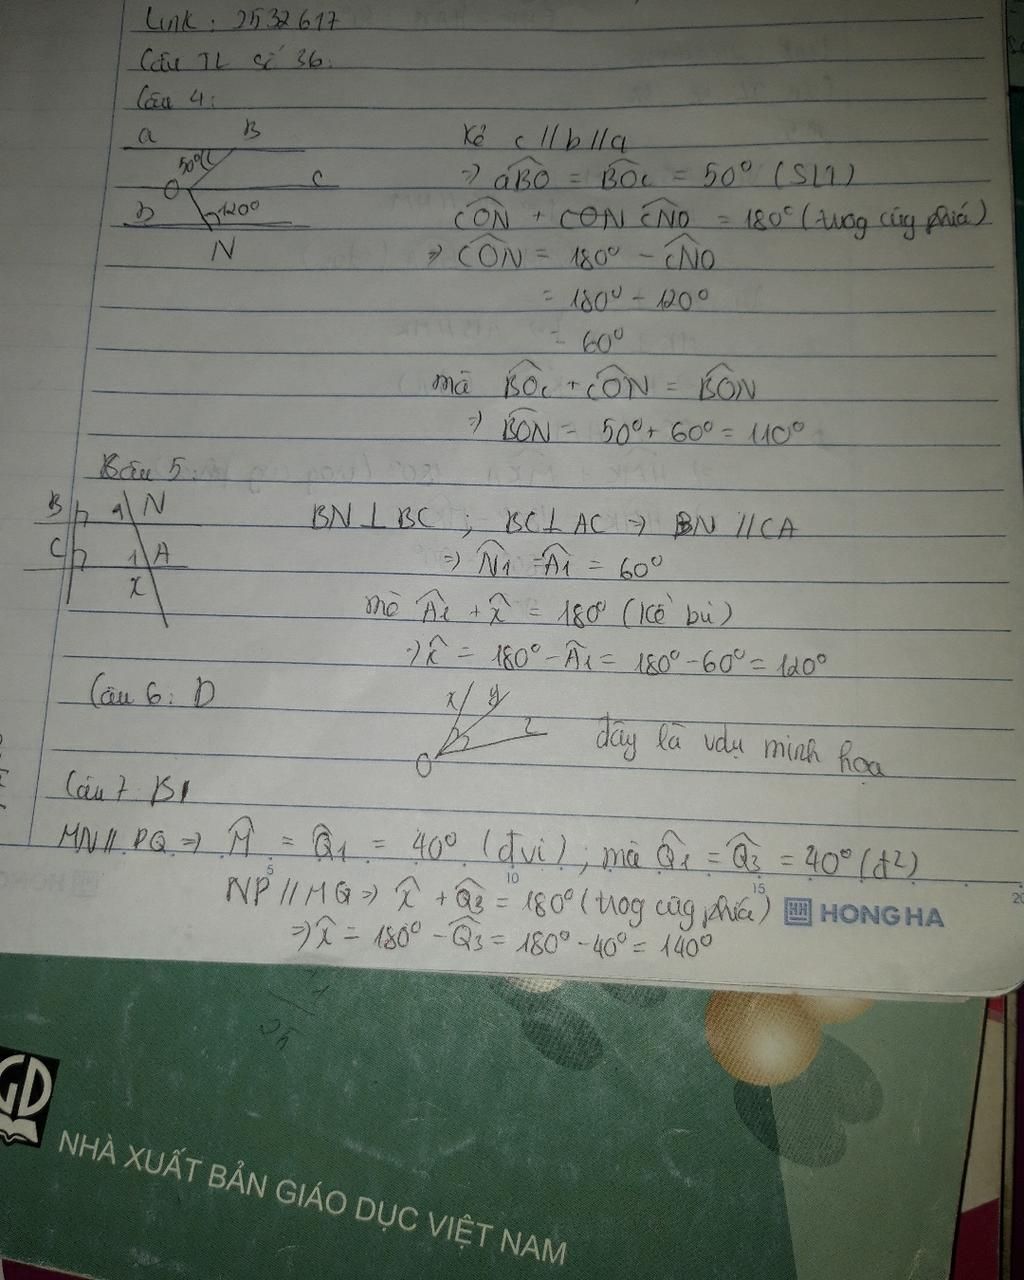 Link: 2532617
Câu TL số 36.
Câu 4:
a B
50°
O c
b 120°
N
Kẻ c//b//a
=> aBO = BOc = 50° (SLT)
cON + CON cNO = 180° (trog cùg phiá)
=> cON = 180° - cNO
= 180° - 120°
= 60°
mà BOc + cON = BON
=> BON = 50° + 60° = 110°
Câu 5:
B 1 N
C 1 A
x
BN ⊥ BC ; BC ⊥ AC => BN // CA
=> N1 = A1 = 60°
mà A1 + x = 180° (kề bù)
=> x = 180° - A1 = 180° - 60° = 120°
Câu 6: D
x y
z
O
đây là vdụ minh họa
Câu 7 B
MN // PQ => M = Q1 = 40° (đvị) ; mà Q1 = Q3 = 40° (đ²)
NP // MQ => x + Q3 = 180° (trog cùg phiá)
=> x = 180° - Q3 = 180° - 40° = 140°
5 10 15 20
HH HONG HA
GD
NHÀ XUẤT BẢN GIÁO DỤC VIỆT NAM